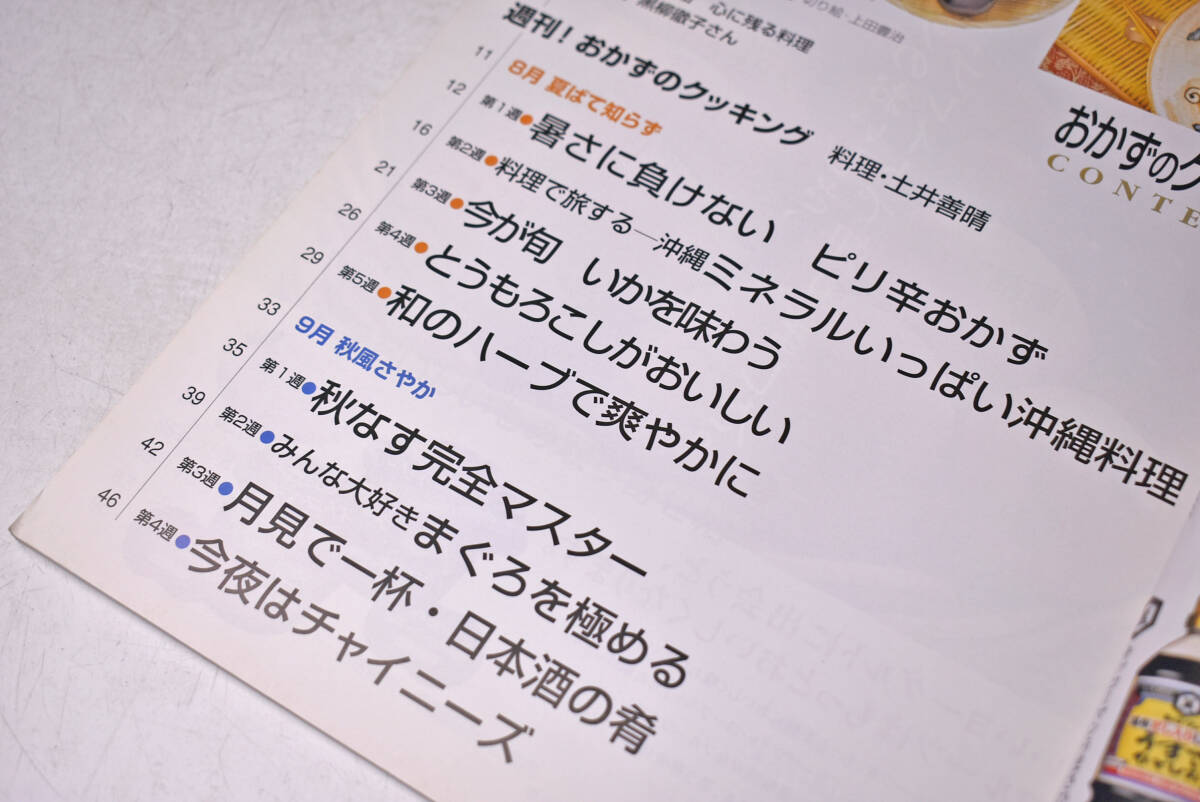 心に残る料理
黒柳徹子さん
切り絵・上田善治
おかずのク
CONTE
週刊!おかずのクッキング 料理・土井善晴
11 8月 夏ばて知らず
12 第1週●暑さに負けない ピリ辛おかず
16 第2週●料理で旅する—沖縄ミネラルいっぱい沖縄料理
21 第3週●今が旬 いかを味わう
26 第4週●とうもろこしがおいしい
29 第5週●和のハーブで爽やかに
33 9月 秋風さやか
35 第1週●秋なす完全マスター
39 第2週●みんな大好きまぐろを極める
42 第3週●月見で一杯・日本酒の肴
46 第4週●今夜はチャイニーズ